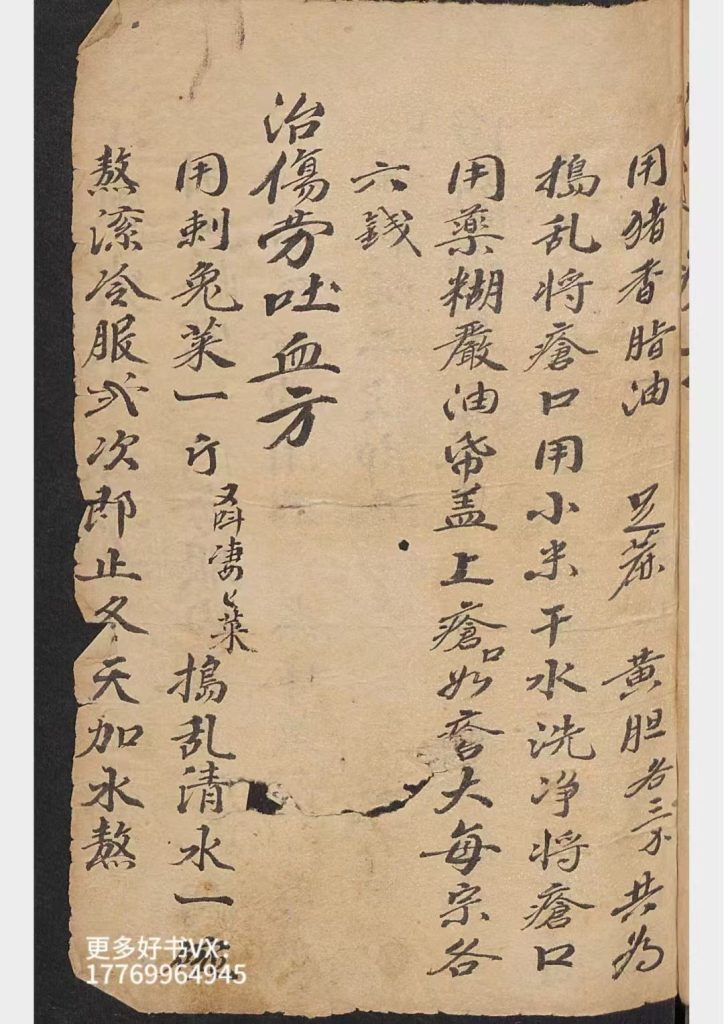 用猪香脂油 黄胆各三分共为
搗乱将瘡口用小米干水洗净将瘡口
用藥糊嚴油帋盖上瘡口如瘡大每宗各
六錢
治傷劳吐血方
用刺兔菜一斤 菜 搗乱清水一
熬滚冷服弍次即止冬天加水熬
更多好书VX:
17769964945